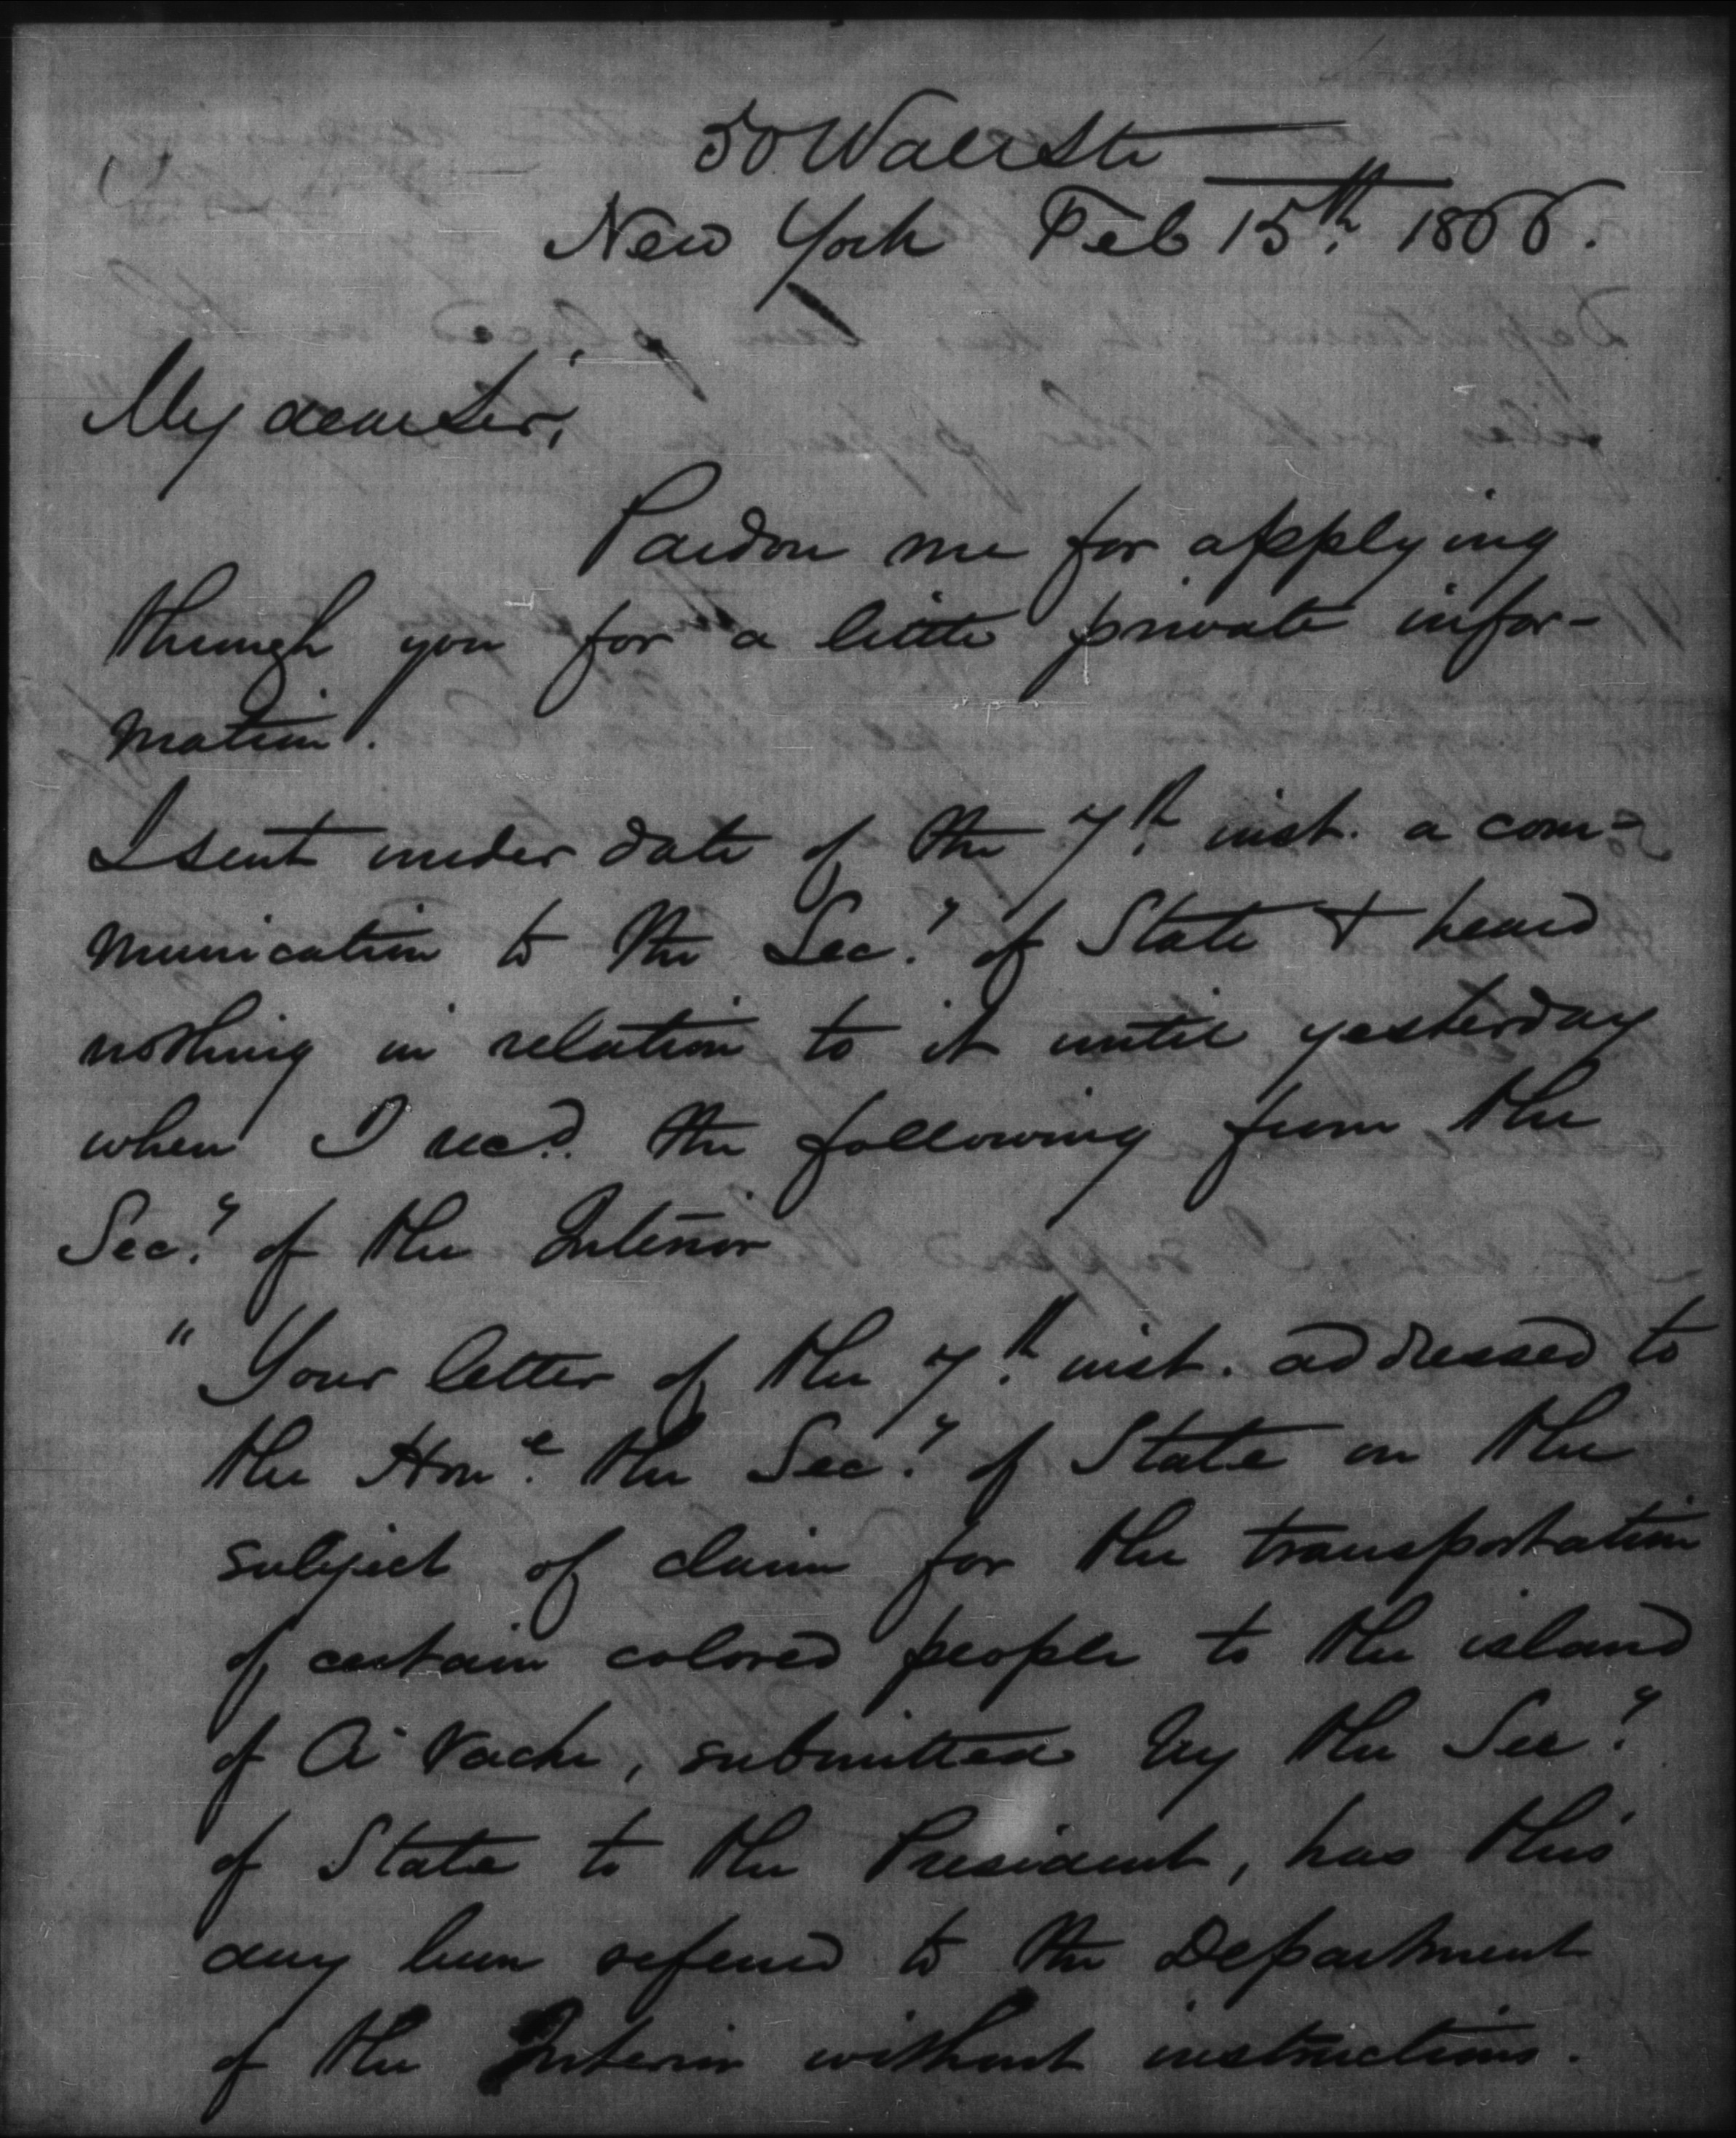 50 Wall St
New York Feb 15th 1866.
My dear Sir,
Pardon me for applying
through you for a little private infor-
mation.
I sent under date of the 7th inst. a com-
munication to the Secy of State & heard
nothing in relation to it until yesterday
when I recd. the following from the
Secy of the Interior
" Your letter of the 7th inst. addressed to
the Hone the Secy of State on the
subject of claim for the transportation
of certain colored people to the island
of A Vache, submitted by the Secy
of State to the President, has this
day been referred to the Department
of the Interior without instructions.